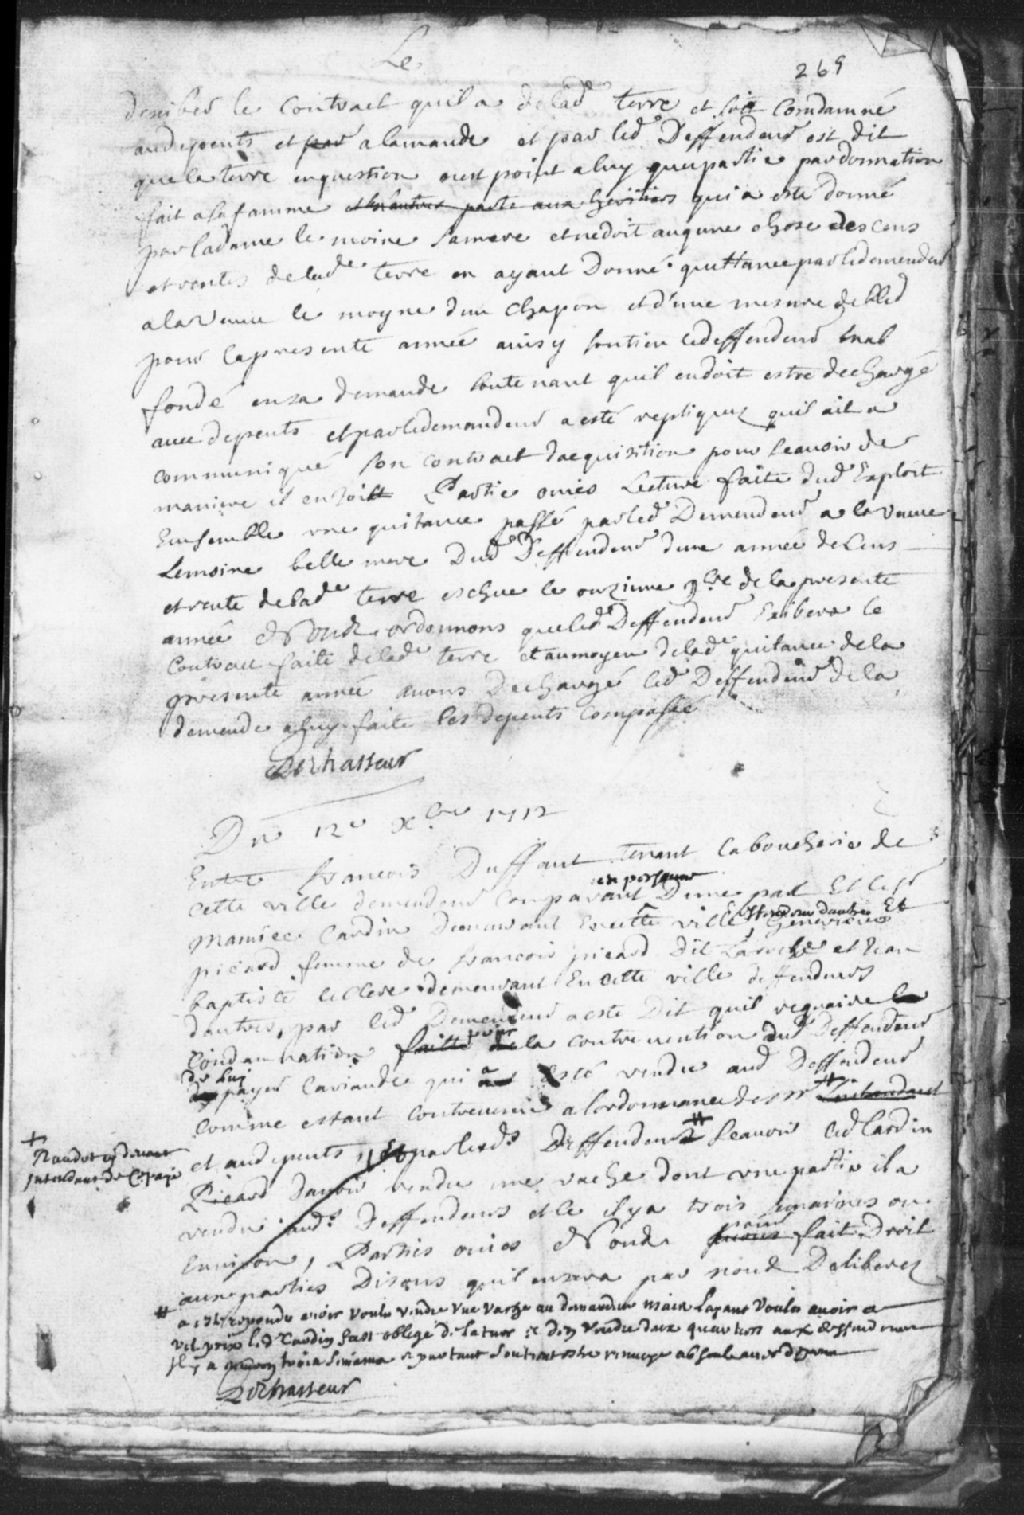 Le
269
le Contract quil a de lad.e terre et soit Comdamné
audepents et par a lamande et par led. Deffendeur est dit
que la terre enquestion nest point a luy quepartie par donnation
fait a sa famme et lautre parte aux heritiers qui a esté donné
par ladame le moine samere et nedoit aucune chose des cens
et rentes de lad.e terre en ayant Donné quittance par ledemendeur
a la veuve le moyne dun Chapon et d'une mesure de bled
pour la presente année ainsy soutien ledeffendeur mal
fondé en sa demande soutenant quil endoit estre dechargé
avec depents et par ledemandeur a esté repliquez quil ait a
communiqué son contract dacquisition pour scavoir de
maniere il en Partie ouies Lecture faite dud. Exploit
Ensemble une quitance passé par led. Demendeur a la veuve
Lemoine belle mere Dud. Deffendeur dune année de Cens
et rente de lad.e terre eschue le onzieme 9bre de la presente
année Nous ordonnons queled. Deffendeur Exibera le
Contract faite de lad.e terre et aumoyen de lad.e quitance de la
presente année avons Dechargé led. Deffendeur de la
demende a luy faite les depents Compassé
Derhasseur
Du 12e Xbre 1712
Entre francois Duffaut tenant la boucherie de
en personne
cette ville demendeur Comparant Dune part Et le s.r
Deffendeur dautre Et
Cardin Demeurant En cette ville Genevieve
picard femme de francois picard dit Laroche et Jean
baptiste demeurant En cette ville deffendeurs
dautres, par led. Demendeur a esté Dit quil requaire la
pour
Condamnation faitte de la contravention dud. Deffendeur
de luy
payer laviande qui a esté vendue aud. Deffendeur
comme estant contrevenu a lordonnance de mr #
+
Raudot cy devant
Intendant de Cepaÿs
et audepents, Et par lesd. Deffendeurs # scavoir led. Cardin
Picard davoir vendu une vache dont une partie il a
vendu aud. Deffendeurs et ce il y a trois semaines ou
Environ, Parties ouies Nous avant fait Droit
aux parties Disons quil ensera par nous Deliberez
# a esté repondu avoir voulu vendre une vache au demandeur mais layant voulu avoir a
vil prix led. Cardin fust oblige de latuer et den vendre deux quartiers aux deffendeurs
il y a environ trois semaine et partant soutient estre renvoye absoule avec depens
Derhasseur